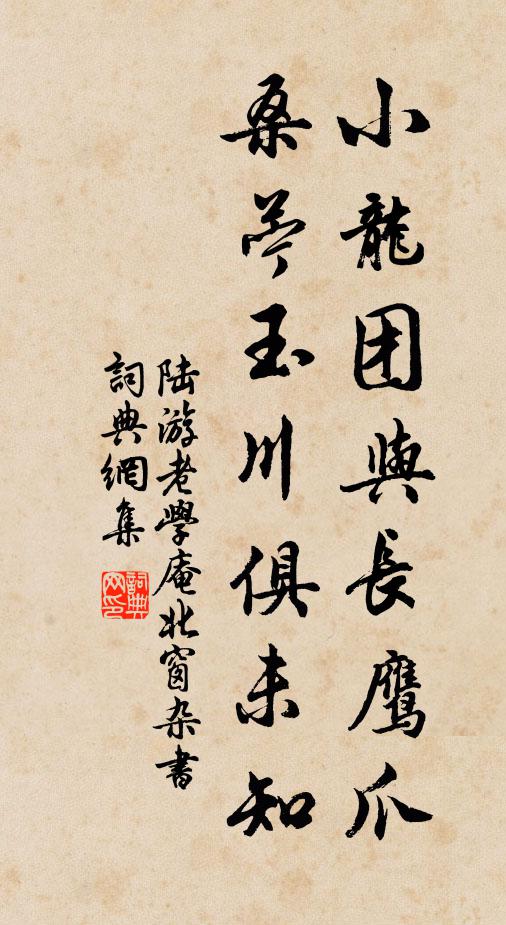 小龍团與長鹰爪
桑苎玉川俱未知
陆游老學庵北窗杂書
詞典網集
詞典网印